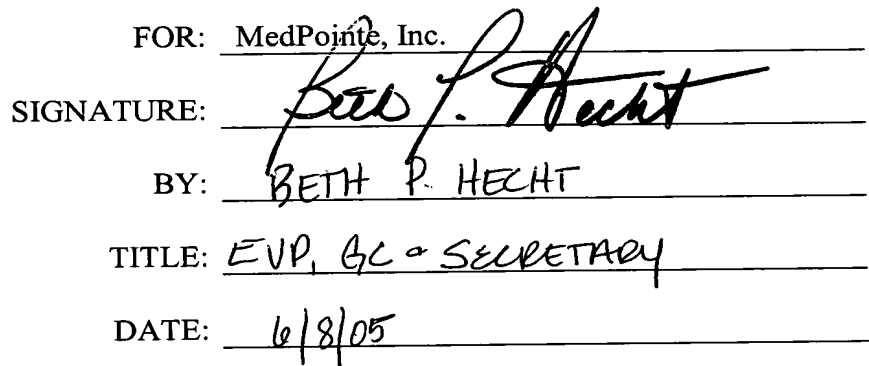 FOR: MedPointe, Inc.
SIGNATURE: Beth P. Hecht
BY: BETH P. HECHT
TITLE: EVP, GC & SECRETARY
DATE: 6/8/05